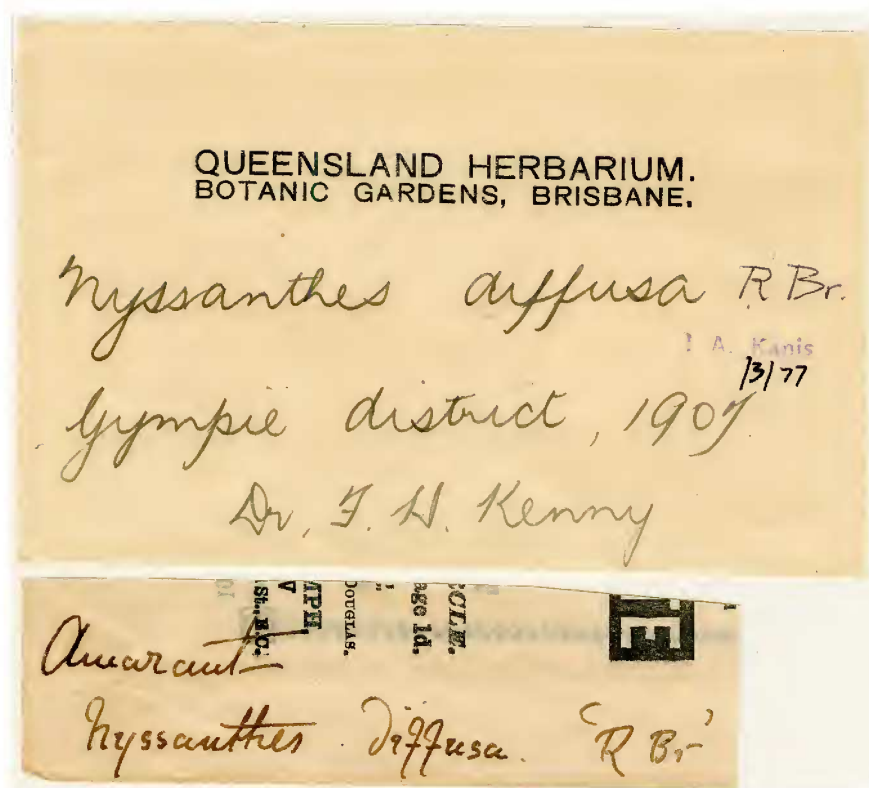 QUEENSLAND HERBARIUM.
BOTANIC GARDENS, BRISBANE.
Nyssanthes diffusa R Br.
! A. Kanis
/3/77
Gympie district, 1907
Dr. F. H. Kenny
CCLE.
age 1d.
Douglas.
MPH
V
St., E.C.
Amarant
Nyssanthes diffusa. 'R Br'